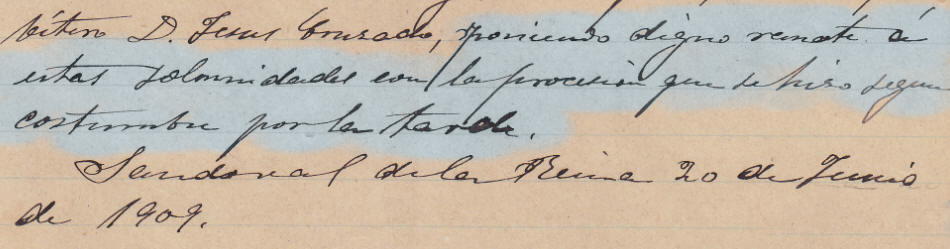 bitero D. Jesus Cruzado, poniendo digno remate á
estas solemnidades con la procesión que se hizo segun
costumbre por la tarde.
Sandoval de la Reina 20 de Junio
de 1909.